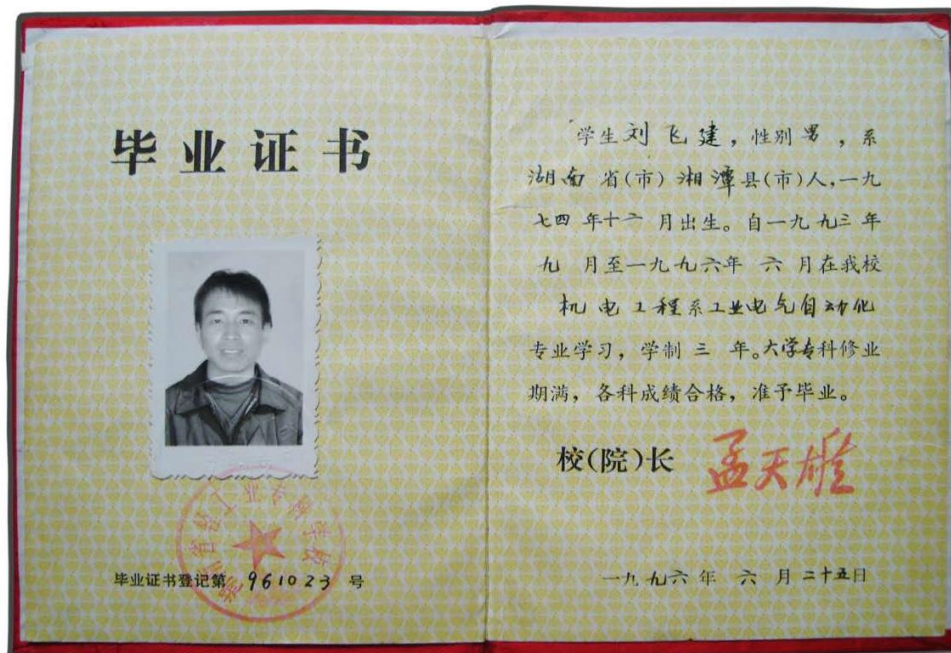 毕业证书
毕业证书登记第 961023 号
学生刘飞建，性别男，系
湖南省(市)湘潭县(市)人，一九
七四年十二月出生。自一九九三年
九月至一九九六年六月在我校
机电工程系工业电气自动化
专业学习，学制三年。大学专科修业
期满，各科成绩合格，准予毕业。
校(院)长 孟天雄
一九九六年六月二十五日